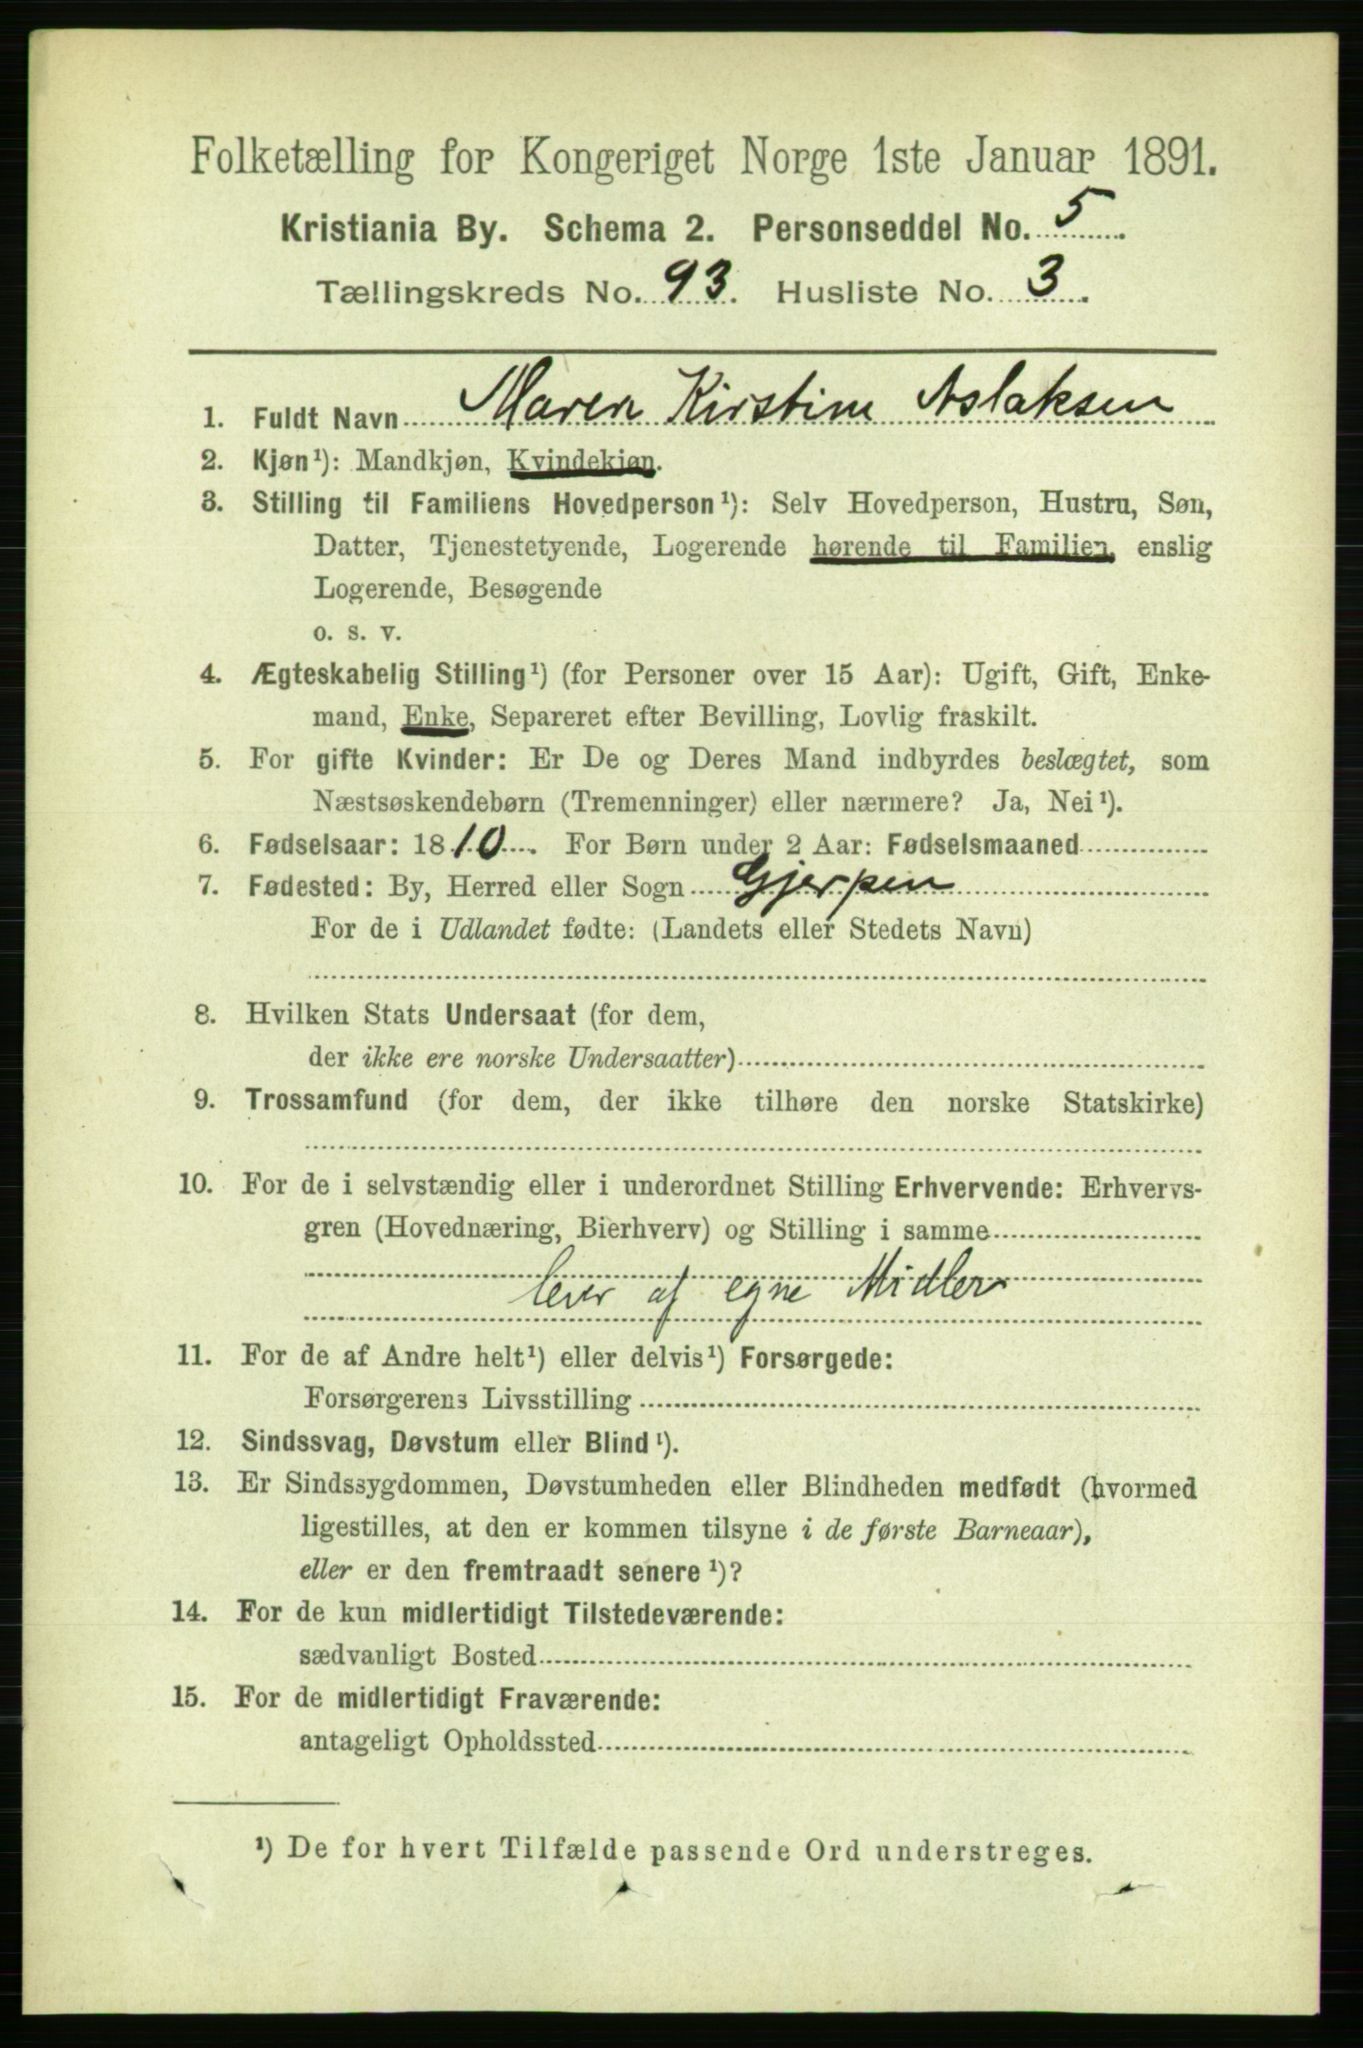 Folketælling for Kongeriget Norge 1ste Januar 1891.
Kristiania By. Schema 2. Personseddel No. 5
Tællingskreds No. 93. Husliste No. 3.
1. Fuldt Navn Maren Kirstine Aslaksen
2. Kjøn¹): Mandkjøn, Kvindekjøn.
3. Stilling til Familiens Hovedperson¹): Selv Hovedperson, Hustru, Søn,
Datter, Tjenestetyende, Logerende hørende til Familien, enslig
Logerende, Besøgende
o. s. v.
4. Ægteskabelig Stilling¹) (for Personer over 15 Aar): Ugift, Gift, Enke-
mand, Enke, Separeret efter Bevilling, Lovlig fraskilt.
5. For gifte Kvinder: Er De og Deres Mand indbyrdes beslægtet, som
Næstsøskendebørn (Tremenninger) eller nærmere? Ja, Nei¹).
6. Fødselsaar: 1810. For Børn under 2 Aar: Fødselsmaaned
7. Fødested: By, Herred eller Sogn Gjerpen
For de i Udlandet fødte: (Landets eller Stedets Navn)
8. Hvilken Stats Undersaat (for dem,
der ikke ere norske Undersaatter)
9. Trossamfund (for dem, der ikke tilhøre den norske Statskirke)
10. For de i selvstændig eller i underordnet Stilling Erhvervende: Erhvervs-
gren (Hovednæring, Bierhverv) og Stilling i samme
lever af egne Midler
11. For de af Andre helt¹) eller delvis¹) Forsørgede:
Forsørgerens Livsstilling
12. Sindssvag, Døvstum eller Blind¹).
13. Er Sindssygdommen, Døvstumheden eller Blindheden medfødt (hvormed
ligestilles, at den er kommen tilsyne i de første Barneaar),
eller er den fremtraadt senere¹)?
14. For de kun midlertidigt Tilstedeværende:
sædvanligt Bosted
15. For de midlertidigt Fraværende:
antageligt Opholdssted
¹) De for hvert Tilfælde passende Ord understreges.